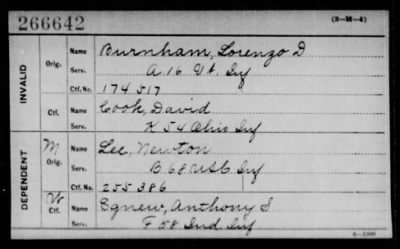 266642
(3-M-4)
INVALID
Orig.
Name Burnham, Lorenzo D
Serv. A. 16 Vt. Inf
Ctf. No. 174517
Ctf.
Name Cook, David
Serv. K 54 Ohio Inf
DEPENDENT
M
Orig.
Name Lee, Newton
Serv. B 68 USC Inf
Ctf. No. 255386
W
Ctf.
Name Egnew, Anthony S
Serv. F 58 Ind. Inf